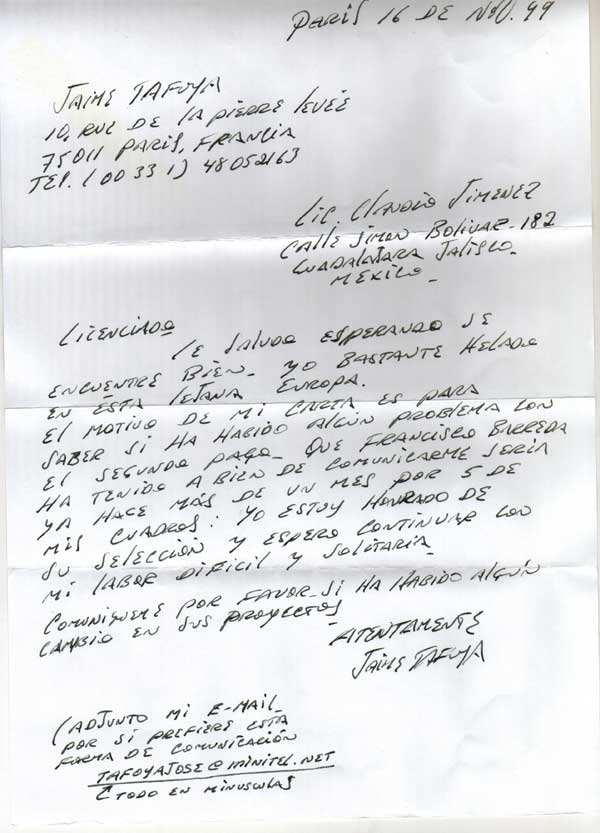 PARIS 16 DE NOV. 99
JAIME TAFOYA
10, RUE DE LA PIERRE LEVÉE
75011 PARIS, FRANCIA
TEL. (00 33 1) 48052163
LIC. CLAUDIO JIMENEZ
CALLE SIMON BOLIVAR - 182
GUADALAJARA JALISCO -
MEXICO -
LICENCIADO
LE SALUDO ESPERANDO SE
ENCUENTRE BIEN - YO BASTANTE HELADO
EN ESTA LEJANA EUROPA.
EL MOTIVO DE MI CARTA ES PARA
SABER SI HA HABIDO ALGÚN PROBLEMA CON
EL SEGUNDO PAGO - QUE FRANCISCO BARREDA
HA TENIDO A BIEN DE COMUNICARME SERIA
YA HACE MÁS DE UN MES POR 5 DE
MIS CUADROS: YO ESTOY HONRADO DE
SU SELECCIÓN Y ESPERO CONTINUAR CON
MI LABOR DIFICIL Y SOLITARIA -
COMUNIQUEME POR FAVOR - SI HA HABIDO ALGÚN
CAMBIO EN SUS PROYECTOS -
ATENTAMENTE
JAIME TAFOYA
(ADJUNTO MI E-MAIL -
POR SI PREFIERE ESTA
FORMA DE COMUNICACIÓN
TAFOYAJOSE@MINITEL.NET
TODO EN MINUSCULAS